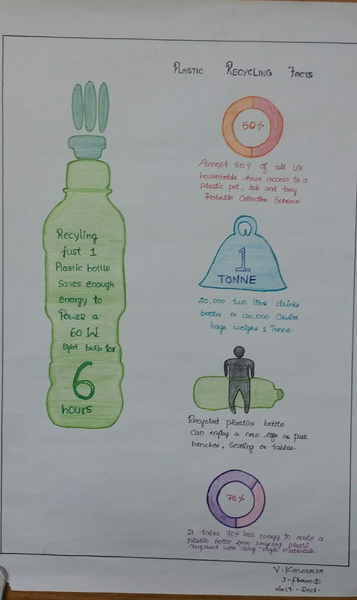 PLASTIC RECYCLING FACTS
Recyling
just 1
Plastic bottle
Saves enough
energy to
POWER a
60 W
light bulb for
6
hours
50%
Almost 50% of all UK
households have access to a
plastic pot, tub and tray
Kerbside Collection Scheme.
1
TONNE
20,000 two litre drinks
bottles or 120,000 Carrier
bags weighs 1 Tonne
Recycled plastics bottle
Can enjoy a new life as park
benches, Seating or tables.
75%
It takes 75% less energy to make a
plastic bottle from recycled plastic
compared with using "virgin" materials.
V.
I - Pharm.D
2017 - 2018.